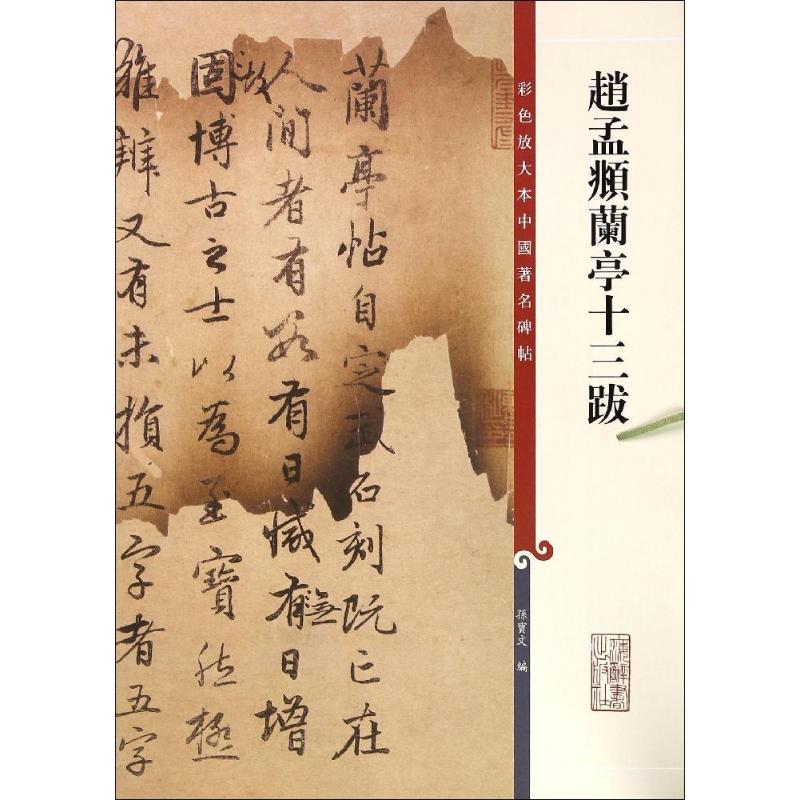 趙孟頫蘭亭十三跋
彩色放大本中國著名碑帖
孫寶文 編
上海辭書出版社
蘭亭帖自定武石刻既亡在
人間者有數有日減有無日增
固故博古之士以為至寶然極
難辨又有未損五字者五字